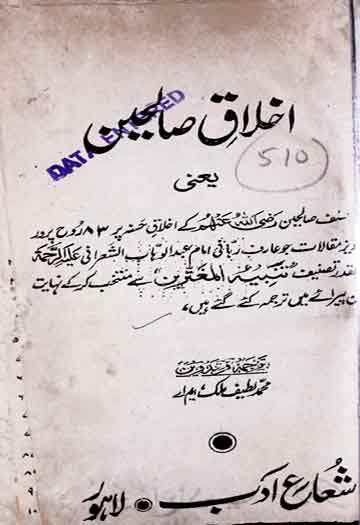 اخلاقِ صالحین
DATA ENTERED
510
یعنی
سلف صالحین رضی اللہ عنہم کے اخلاقِ حسنہ پر ۸۳ روح پرور
مقالات جو عارفِ ربّانی امام عبدالوہاب الشعرانی علیہ الرحمۃ کی
تصنیف "تنبیہ المغترین" سے منتخب کر کے نہایت
پیرائے میں ترجمہ کئے گئے ہیں۔
محمد لطیف ملک، ایم اے
شعاعِ ادب ● لاہور